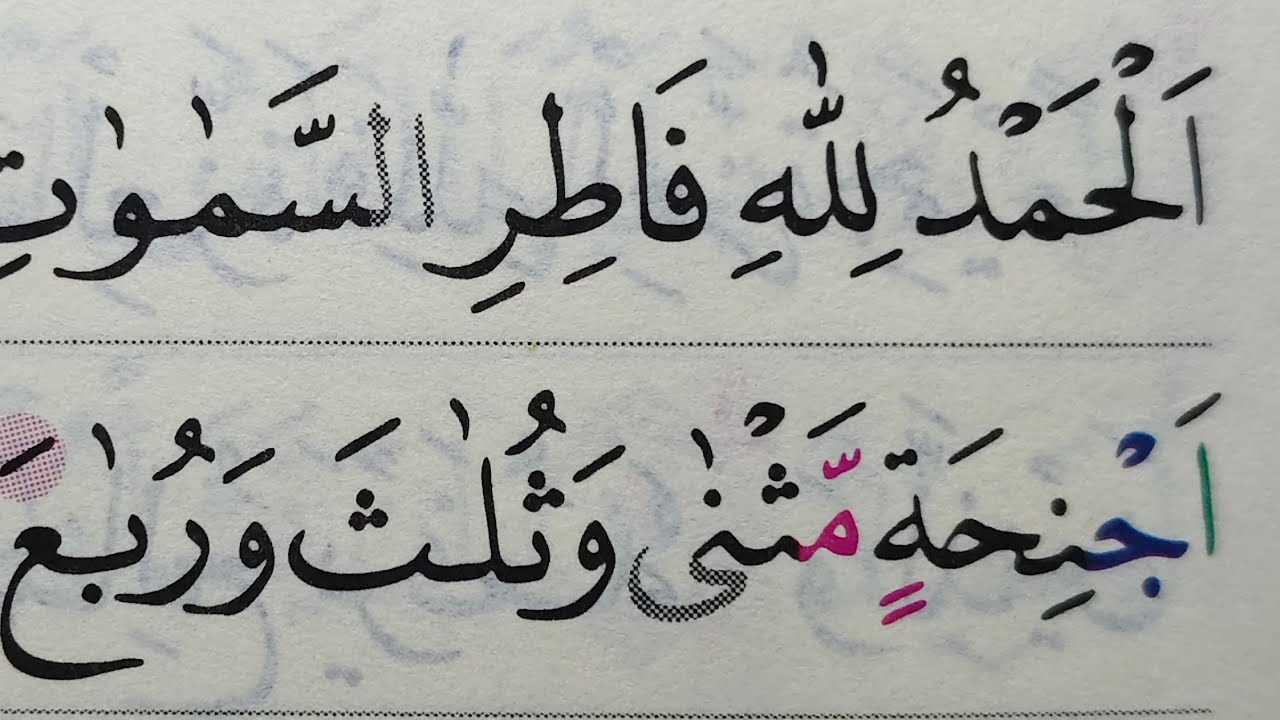 اَلْحَمْدُ لِلّٰهِ فَاطِرِ السَّمٰوٰتِ
اَجْنِحَةٍ مَّثْنٰى وَثُلٰثَ وَرُبٰعَ